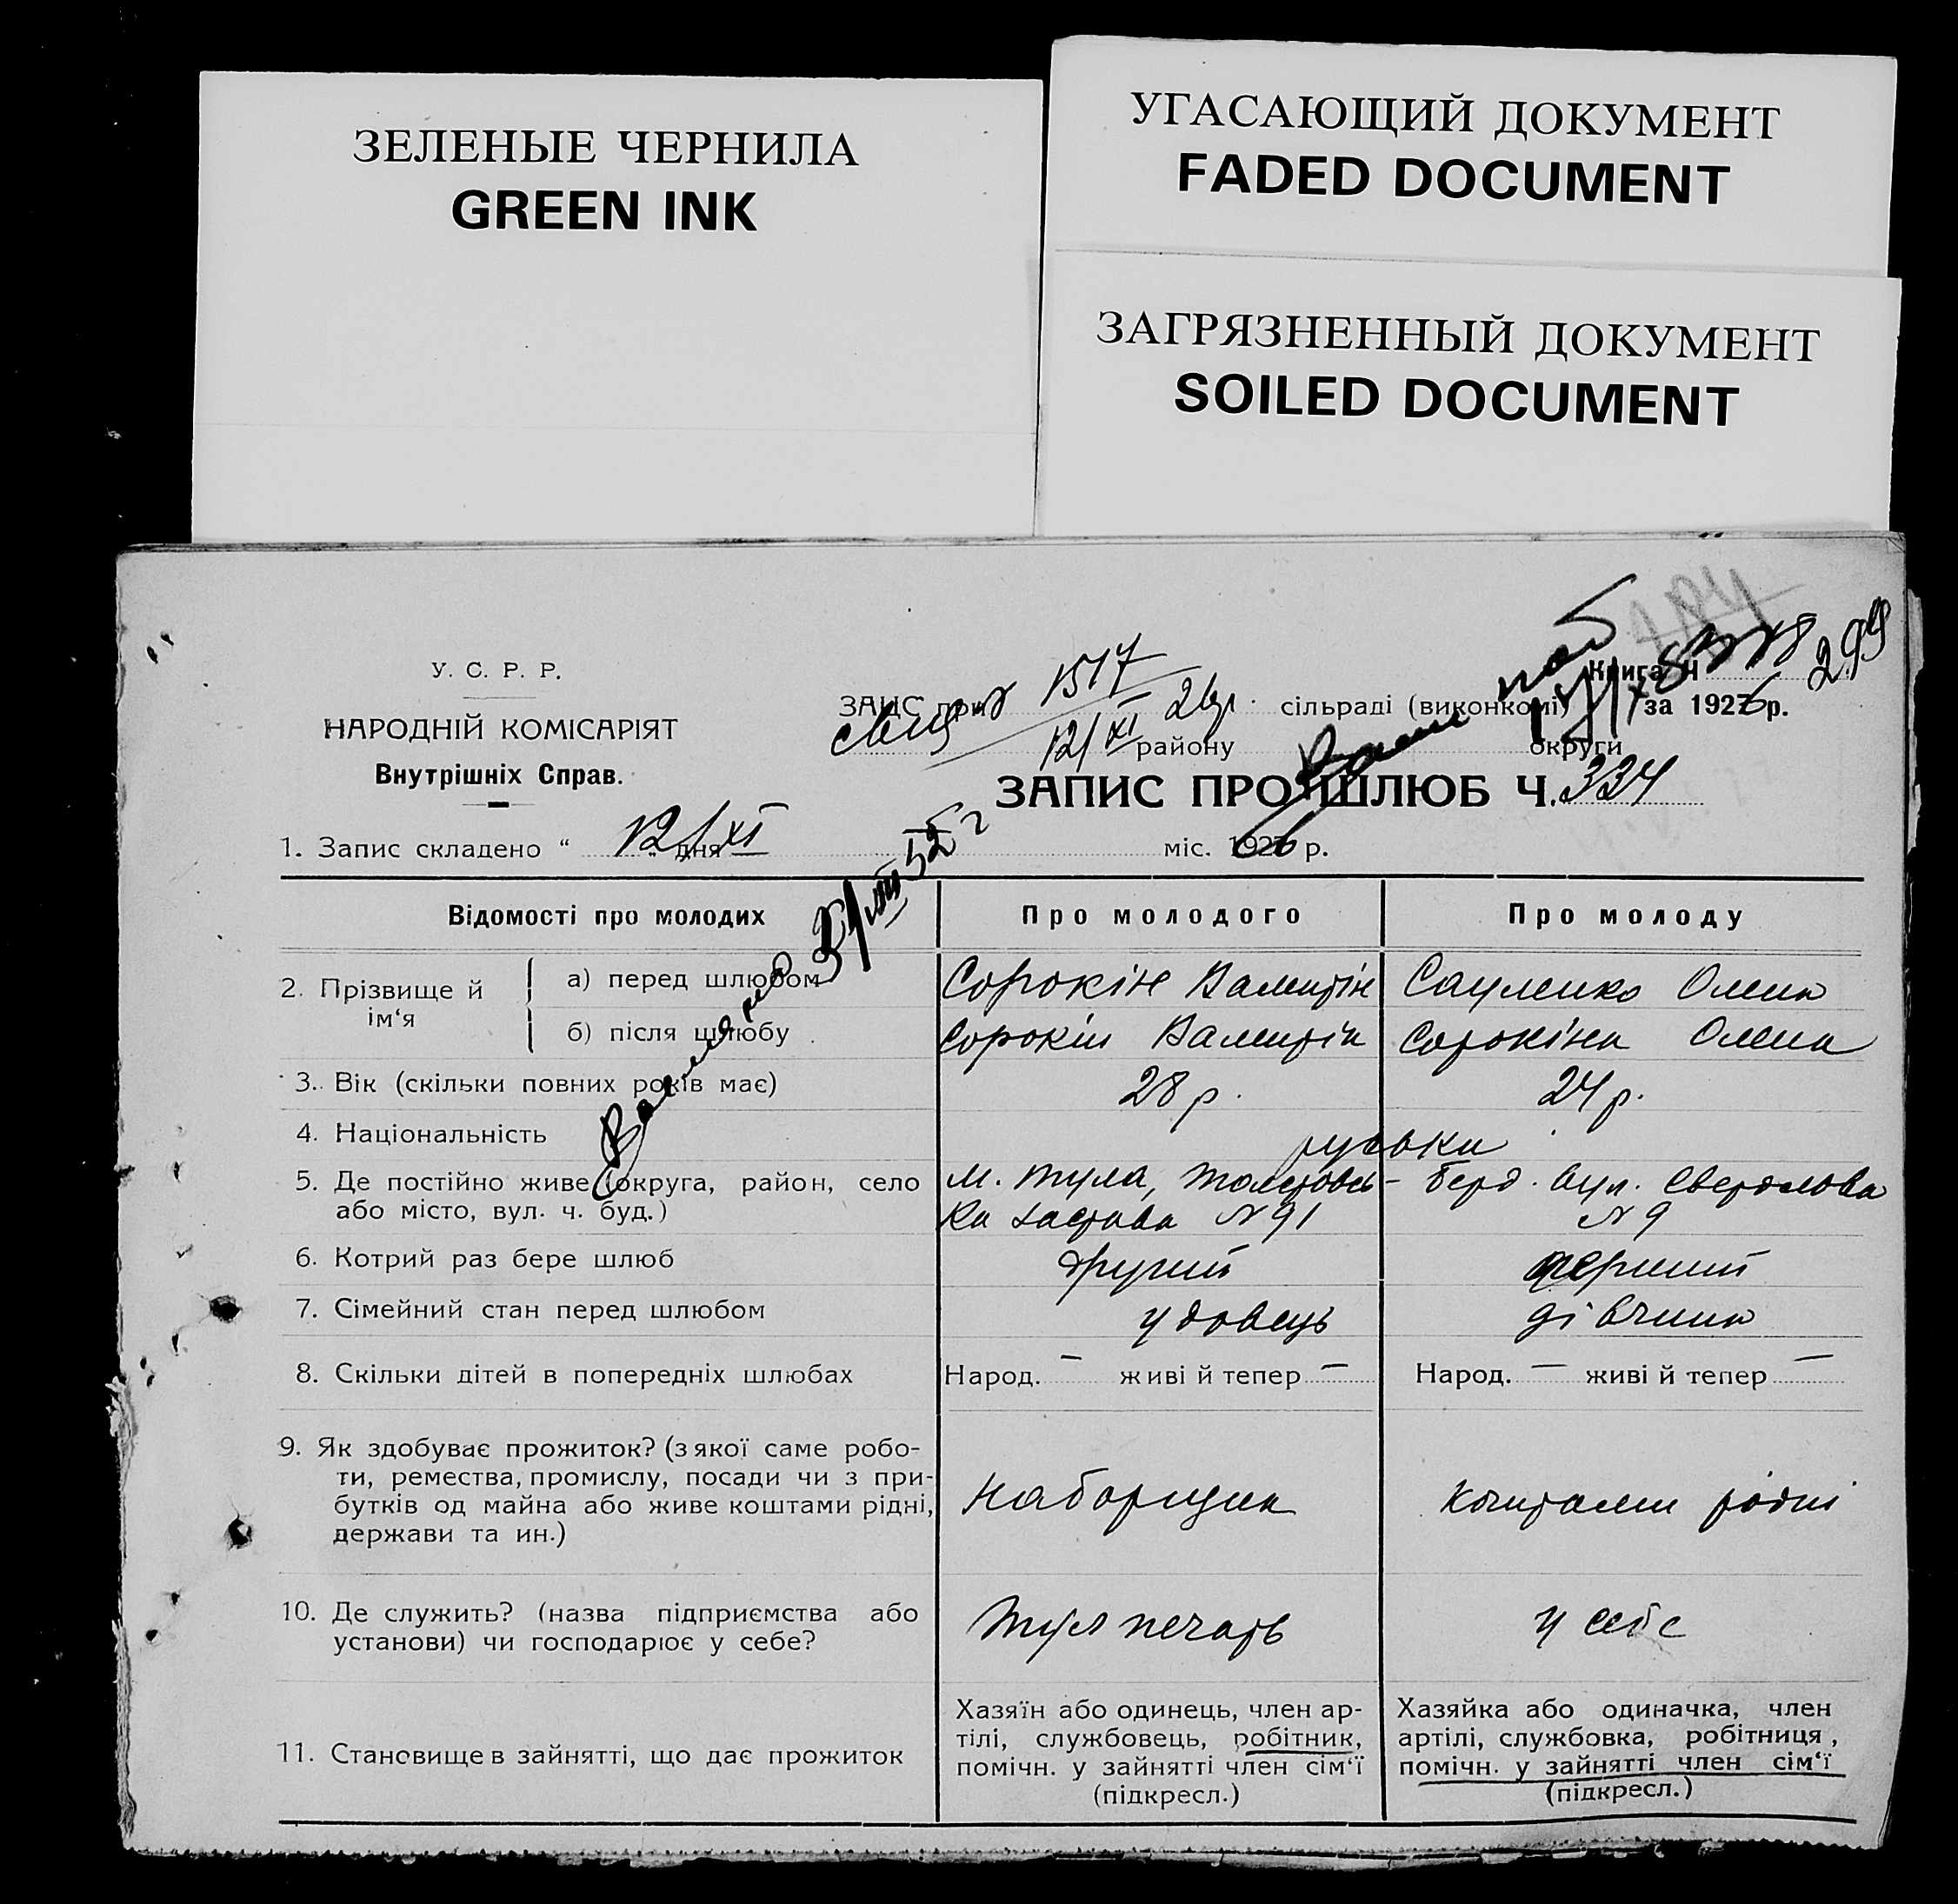 ЗЕЛЕНЫЕ ЧЕРНИЛА
GREEN INK
УГАСАЮЩИЙ ДОКУМЕНТ
FADED DOCUMENT
ЗАГРЯЗНЕННЫЙ ДОКУМЕНТ
SOILED DOCUMENT
299
Книга Ч
за 1926 р.
У. С. Р. Р.
НАРОДНІЙ КОМІСАРІЯТ
Внутрішніх Справ.
ЗАЦС при 1517 сільраді (виконкомі)
12/XI 26 р. району округи
ЗАПИС ПРО ШЛЮБ Ч. 334
1. Запис складено “ 12/XI „ дня міс. 1926 р.
Відомості про молодих Про молодого Про молоду
2. Прізвище й ім‘я
а) перед шлюбом Сорокін Валентін Сауленко Олена
б) після шлюбу Сорокін Валентін Сорокіна Олена
3. Вік (скільки повних років має) 28 р. 24 р.
4. Національність руська
5. Де постійно живе (округа, район, село м. Тула, Толстовсь- Берд. вул. Свердлова
або місто, вул. ч. буд.) ка застава № 91 № 9
6. Котрий раз бере шлюб другий перший
7. Сімейний стан перед шлюбом удовець дівчина
8. Скільки дітей в попередніх шлюбах Народ. — живі й тепер — Народ. — живі й тепер —
9. Як здобуває прожиток? (з якої саме робо-
ти, ремества, промислу, посади чи з при-
бутків од майна або живе коштами рідні,
держави та ин.)
наборщик коштами рідні
10. Де служить? (назва підприємства або
установи) чи господарює у себе?
Тул печать у себе
11. Становище в зайнятті, що дає прожиток
Хазяїн або одинець, член ар-
тілі, службовець, робітник,
помічн. у зайнятті член сім‘ї
(підкресл.)
Хазяйка або одиначка, член
артілі, службовка, робітниця,
помічн. у зайнятті член сім‘ї
(підкресл.)